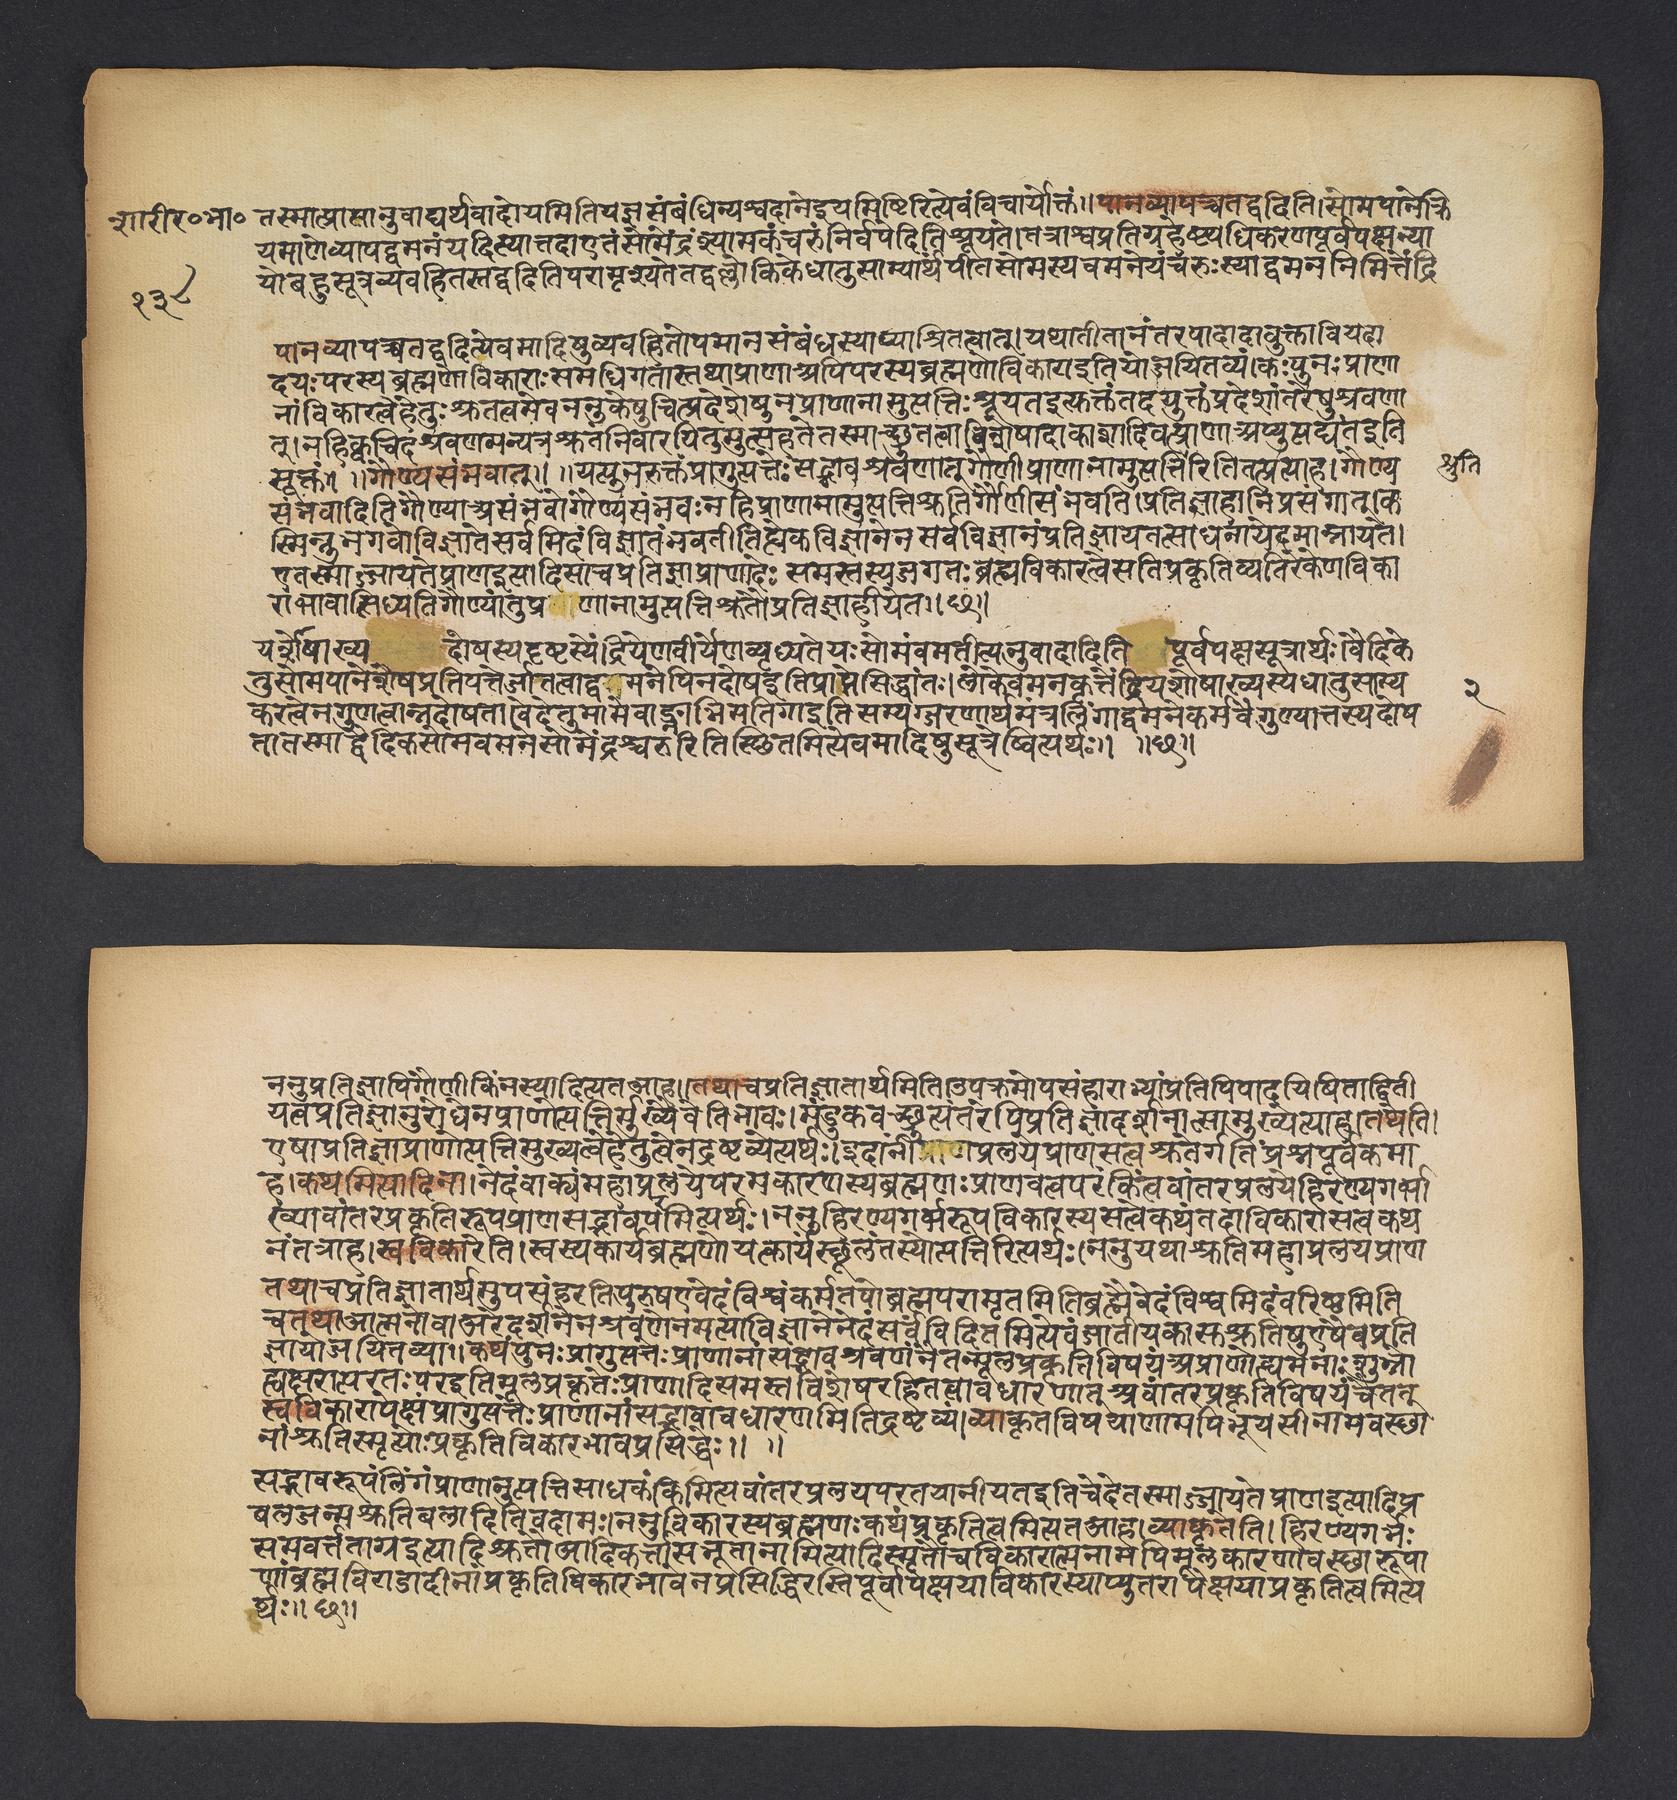 शारीर०भा० तस्मात्प्राप्तानुवाद्यर्थवादोयमितियज्ञसंबंधिन्यश्वदानेइयमिष्टिरित्येवंविचार्योक्तं॥पानव्यापच्चतद्वदिति।सोमपानेक्रि
यमाणेव्यापद्वमनंयदिस्यात्तदाएतंसोमेंद्रंश्यामाकंचरुंनिर्वपेदितिश्रूयते।तत्राश्वप्रतिग्रहेष्ट्यधिकरणपूर्वपक्षन्या
योबहुसूत्रव्यवहितस्तद्वदितिपरामृश्यतेतद्वल्लौकिकेधातुसाम्यार्थंपीतसोमस्यवमनेयंचरुःस्याद्वमननिमित्तेंद्रि
१३८
पानव्यापच्चतद्वदित्येवमादिषुव्यवहितोपमानसंबंधस्याप्याश्रितत्वात्।यथातीतानंतरपादादावुक्तावियदा
दयःपरस्यब्रह्मणोविकाराःसमधिगतास्तथाप्राणाअपिपरस्यब्रह्मणोविकाराइतियोजयितव्यं।कःपुनःप्राणा
नांविकारत्वेहेतुःश्रुतत्वमेवननुकेषुचित्प्रदेशेषुनप्राणानामुत्पत्तिःश्रूयतइत्युक्तंतदयुक्तंप्रदेशांतरेषुश्रवणा
त्।नहिक्वचिदश्रवणमन्यत्रश्रुतंनिवारयितुमुत्सहतेतस्माच्छ्रुतत्वाविशेषादाकाशादिवत्प्राणाअप्युत्पद्यंतइति
सूक्तं॥ ॥गौण्यसंभवात्॥ ॥यत्पुनरुक्तंप्रागुत्पत्तेःसद्भावश्रवणात्गौणीप्राणानामुत्पत्तिरितितत्प्रत्याह।गौण्य श्रुति
संभवादितिगौण्याअसंभवोगौण्यसंभवःनहिप्राणानामुत्पत्तिश्रुतिर्गौणीसंभवति।प्रतिज्ञाहानिप्रसंगात्।क
स्मिन्नुभगवोविज्ञातेसर्वमिदंविज्ञातंभवतीतिह्येकविज्ञानेनसर्वविज्ञानंप्रतिज्ञायतत्साधनायेदमाम्नायते।
एतस्माज्जायतेप्राणइत्यादिसाचप्रतिज्ञाप्राणादेःसमस्तस्यजगतःब्रह्मविकारत्वेसतिप्रकृतिव्यतिरेकेणविका
राभावात्सिध्यतिगौण्यांतुप्राणानामुत्पत्तिश्रुतौप्रतिज्ञाहीयेत॥छ॥
यशोषाख्य दोषस्यदृष्टस्येंद्रियेणवीर्येणव्यृध्यतेयःसोमंवमतीत्यनुवादादिति पूर्वपक्षसूत्रार्थःवैदिके
तुसोमपानेशेषप्रतिपत्तेर्जातत्वाद्वमनेपिनदोषइतिप्राप्तेसिद्धांतः।लोकेवमनकृतेंद्रियशोषाख्यस्यधातुसाम्य २
करत्वेनगुणत्वान्नदोषतावेदेतुमामेवाङ्नाभिमतिगाइतिसम्यग्जरणार्थमंत्रलिंगाद्वमनेकर्मवैगुण्यात्तस्यदोष
तातस्माद्वैदिकसोमवमनेसोमेंद्रश्चरुरितिस्थितमित्येवमादिषुसूत्रेष्वित्यर्थः॥ ॥छ॥
ननुप्रतिज्ञापिगौणीकिंनस्यादित्यतआह॥तथाचप्रतिज्ञातार्थमिति।उपक्रमोपसंहाराभ्यांप्रतिपिपादयिषिताद्विती
यत्वप्रतिज्ञानुरोधेनप्राणोत्पत्तिर्मुख्यैवेतिभावः।मुंडकवच्छ्रुत्यंतरेपिप्रतिज्ञादर्शनात्सामुख्येत्याह।तथेति।
एषाप्रतिज्ञाप्राणोत्पत्तिमुख्यत्वेहेतुत्वेनद्रष्टव्येत्यर्थः।इदानींप्राणप्रलयेप्राणसत्वश्रुतेर्गतिंप्रश्नपूर्वकमा
ह।कथमित्यादिना।नेदंवाक्यंमहाप्रलयेपरमकारणस्यब्रह्मणःप्राणवत्वपरंकिंत्ववांतरप्रलयेहिरण्यगर्भा
ख्यावांतरप्रकृतिरूपप्राणसद्भावपरमित्यर्थः।ननुहिरण्यगर्भरूपविकारस्यसत्वेकथंतदाविकारासत्वकथ
नंतत्राह।स्वविकारेति।स्वस्यकार्यब्रह्मणोयत्कार्यंस्थूलंतस्योत्पत्तिरित्यर्थः।ननुयथाश्रुतिमहाप्रलयप्राण
तथाचप्रतिज्ञातार्थमुपसंहरतिपुरुषएवेदंविश्वंकर्मतपोब्रह्मपरामृतमितिब्रह्मैवेदंविश्वमिदंवरिष्ठमिति
चतथाआत्मनोवाअरेदर्शनेनश्रवणेनमत्याविज्ञानेनेदंसर्वंविदितमित्येवंजातीयकासुश्रुतिषुएषैवप्रति
ज्ञायोजयितव्या॥कथंपुनःप्रागुत्पत्तेःप्राणानांसद्भावश्रवणंनैतन्मूलप्रकृतिविषयंअप्राणोह्यमनाःशुभ्रो
ह्यक्षरात्परतःपरइतिमूलप्रकृतेःप्राणादिसमस्तविशेषरहितत्वावधारणात्अवांतरप्रकृतिविषयंचैतत्
स्वविकारापेक्षंप्रागुत्पत्तेःप्राणानांसद्भावावधारणमितिद्रष्टव्यं।व्याकृतविषयाणामपिभूयसीनामवस्था
नांश्रुतिस्मृत्योःप्रकृतिविकारभावप्रसिद्धेः॥ ॥
सद्भावरूपंलिंगंप्राणानुत्पत्तिसाधकंकिमित्यवांतरप्रलयपरतयानीयतइतिचेदेतस्माज्जायतेप्राणइत्यादिप्र
बलजन्मश्रुतिबलादितिवदामः।ननुविकारस्यब्रह्मणःकथंप्रकृतित्वमित्यतआह।व्याकृतेति।हिरण्यगर्भः
समवर्त्ततागइत्यादिश्रुतौआदिकर्त्तासभूतानामित्यादिस्मृतौचविकारात्मनामपिमूलकारणावस्थारूपा
णांब्रह्मविराडादीनांप्रकृतिविकारभावेनप्रसिद्धिरस्तिपूर्वापेक्षयाविकारस्याप्युत्तरापेक्षयाप्रकृतित्वमित्य
र्थः॥छ॥